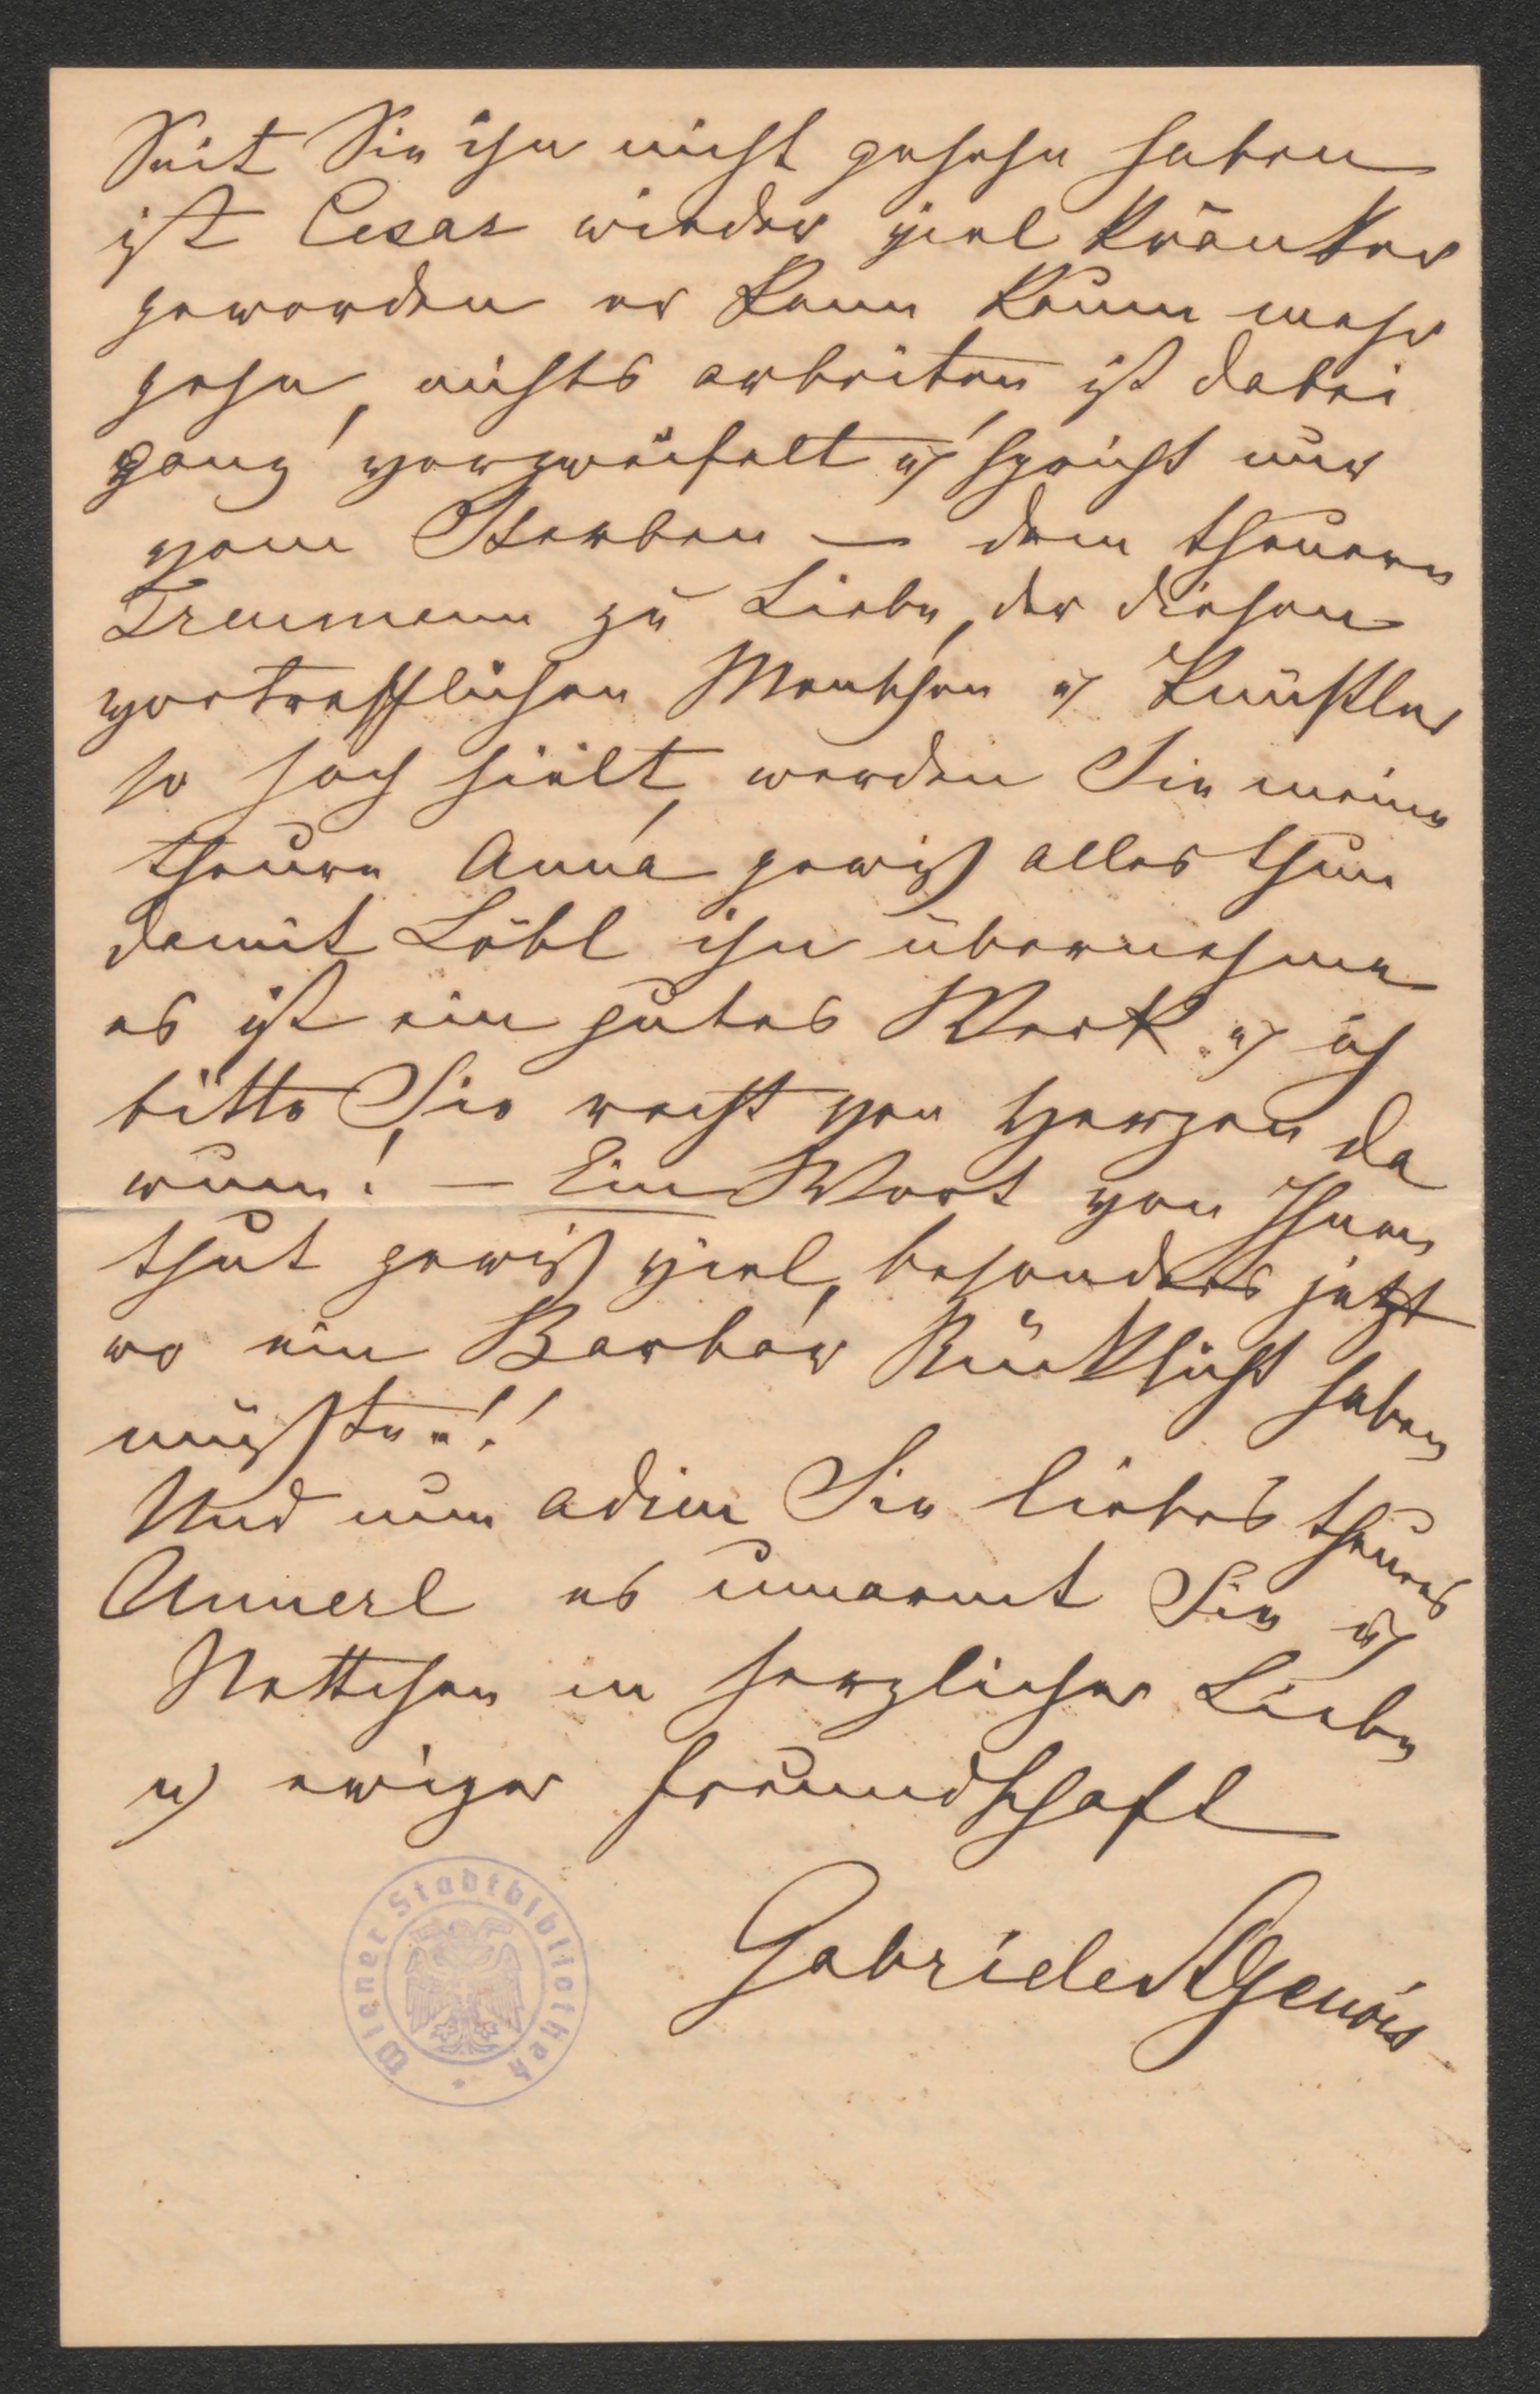 Seit Sie ihn nicht gesehn haben
ist Cesar wieder viel kränker
geworden er kann kaum mehr
gehn, nichts arbeiten ist dabei
ganz verzweifelt u spricht nur
vom Sterben — dem theuern
zu Liebe, der diesen
vortrefflichen Menschen u Künstler
so hoch hielt, werden Sie meine
theure Anna gewiß alles thun
damit Löbl ihn übernehme
es ist ein gutes Werk u ich
bitte Sie recht von Herzen da
rum! — Ein Wort von Ihnen
thut gewiß viel, besonders jetzt
wo ein Barbar Rücksicht haben
müßte!!
Und nun adieu Sie liebes theures
Annerl es umarmt Sie u
Nettchen in herzlicher Liebe
u ewiger Freundschaft
Gabriele
Wiener Stadtbibliothek